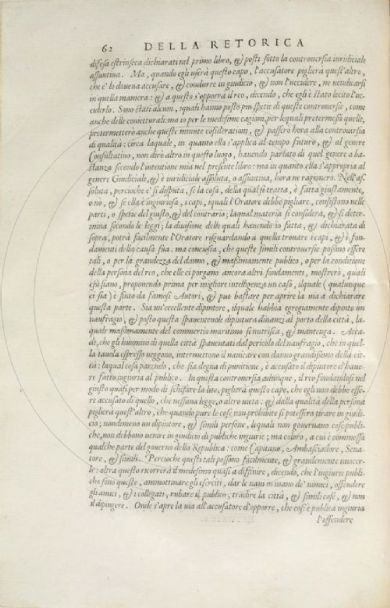 62 DELLA RETORICA
difesa estrinseca dichiarati nel primo libro, & posti sotto la controuersia iuridiciale
assuntiua. Ma, quando egli userà questo capo, l'accusatore piglierà quest'altro,
che s'è di deueua accusare, & condurre in giudicio, & non l'uccidere, ne uendicarsi
in quella maniera: & a questo s'opporrà il reo, dicendo, che egli è stato lecito l'uc-
ciderlo. Sono stati alcuni, i quali hanno posto più spetie di queste controuersie, come
anche delle conietturali: ma io per le medesime cagioni, per le quali pretermessi quelle,
pretermetterò anche queste minute considerationi, & passerò hora alla controuersia
di qualità: circa laquale, in quanto ella s'applica al tempo futuro, & al genere
Consultatiuo, non dirò altro in questo luogo, hauendo parlato di quel genere a ba-
stanza secondo l'intentione mia nel presente libro: ma in quanto ella s'appropria al
genere Giudiciale, & è iuridiciale assoluta, o assuntiua, hora ne ragionerò. Nell'as-
soluta, percioche s'è si disputa, se la cosa, della qual si tratta, è fatta giustamente,
o nò, & se ella è ingiuriosa, i capi, i quali l'Oratore debbe pigliare, consistono nelle
parti, o spetie del giusto, & del contrario; laqual materia si considera, & si deter-
mina secondo le leggi; la diuisione delle quali hauendo io fatta, & dichiarata di
sopra, potrà facilmente l'Oratore risguardando a quella trouare i capi, & i fon-
damenti della causa sua. ma conciosia, che queste simili controuersie possino essere
tali, o per la grandezza del danno, & massimamente publico, o per la conditione
della persona del reo, che elle ci porgano ancora altri fundamenti, mostrerò, quali
essi siano, proponendo prima per migliore intelligenza un caso, ilquale (qualunque
ei sia) è finto da famosi Autori, & può bastare per aprire la uia a dichiarare
questa parte. Sia un'eccellente dipintore, ilquale habbia egregiamente dipinto un
naufragio, & posto questa spauenteuole dipintura dinanzi al porto della città, la-
quale massimamente del commertio maritimo si nutrisca, & mantenga. Acca-
de, che gli huomini di quella città spauentati dal pericolo del naufragio, che in quel-
la tauola espresso ueggono, intermettono il nauicare con danno grandissimo della cit-
tà: laqual cosa parendo, che sia degna di punitione, è accusato il dipintore d'haue-
re fatto ingiuria al publico. In questa controuersia adunque, il reo fondandosi nel
giusto quasi per modo di schifare la lite, piglierà questo capo, che egli non debbe esse-
re accusato di quello, che nessuna legge, o altro uieta: & dalla qualità della persona
piglierà quest'altro, che quando pure le cose non prohibite si potessero tirare in giudi-
cio; nondimeno un dipintore, & simili persone, le quali non gouernano cose publi-
che, non debbono uenire in giudicio di publiche ingiurie; ma coloro, a cui è commessa
qualche parte del gouerno della Republica: come Capitani, Ambasciadore, Sena-
tore, & simili. Percioche questi tali possono facilmente, & grandemente nuoce-
re: altra questo ricorrerà il medesimo quasi a diffinire, dicendo, che l'ingiurie publi-
che sono queste, ammottinare gli eserciti, dar le naui in mano de' nimici, offendere
gli amici, & i collegati, rubare il publico, tradire la città, & simili cose, & non
il dipingere. Onde s'apre la uia all'accusatore d'opporre, che cosi è publica ingiuria
l'offendere